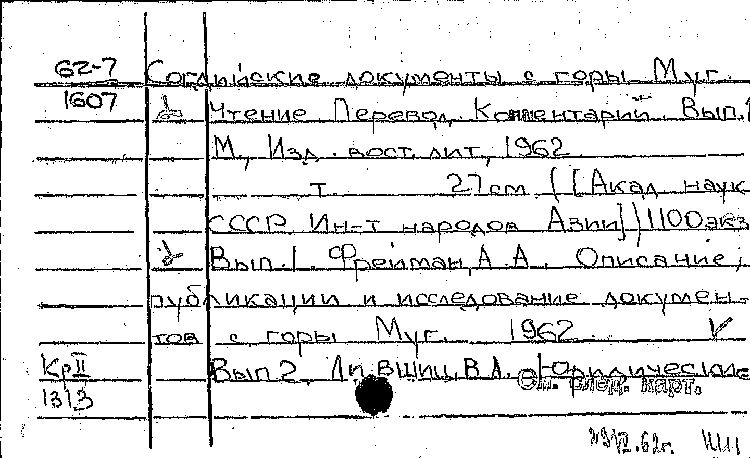 62-7 Согдийские документы с горы Муг.
1607 Чтение Перевод, Комментарий. Вып.1
М., Изд. вост. лит., 1962
т. 27см. ([Акад наук
СССР. Ин-т народов Азии]) 1100экз
Вып.1. Фрейман, А.А. Описание,
публикации и исследование докумен-
тов с горы Муг. 1962
КрII Вып.2. Лившиц, В.А. Юридические
1313 См. след. карт.
62г.